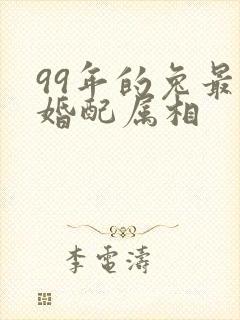 99年的兔最
婚配属相
李電濤